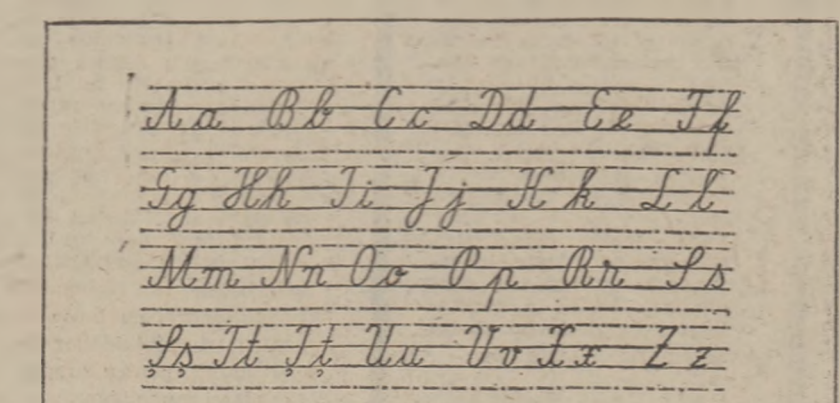 Aa Bb Cc Dd Ee Ff
Gg Hh Ii Jj Kk Ll
Mm Nn Oo Pp Rr Ss
Șș Tt Țț Uu Vv Xx Zz